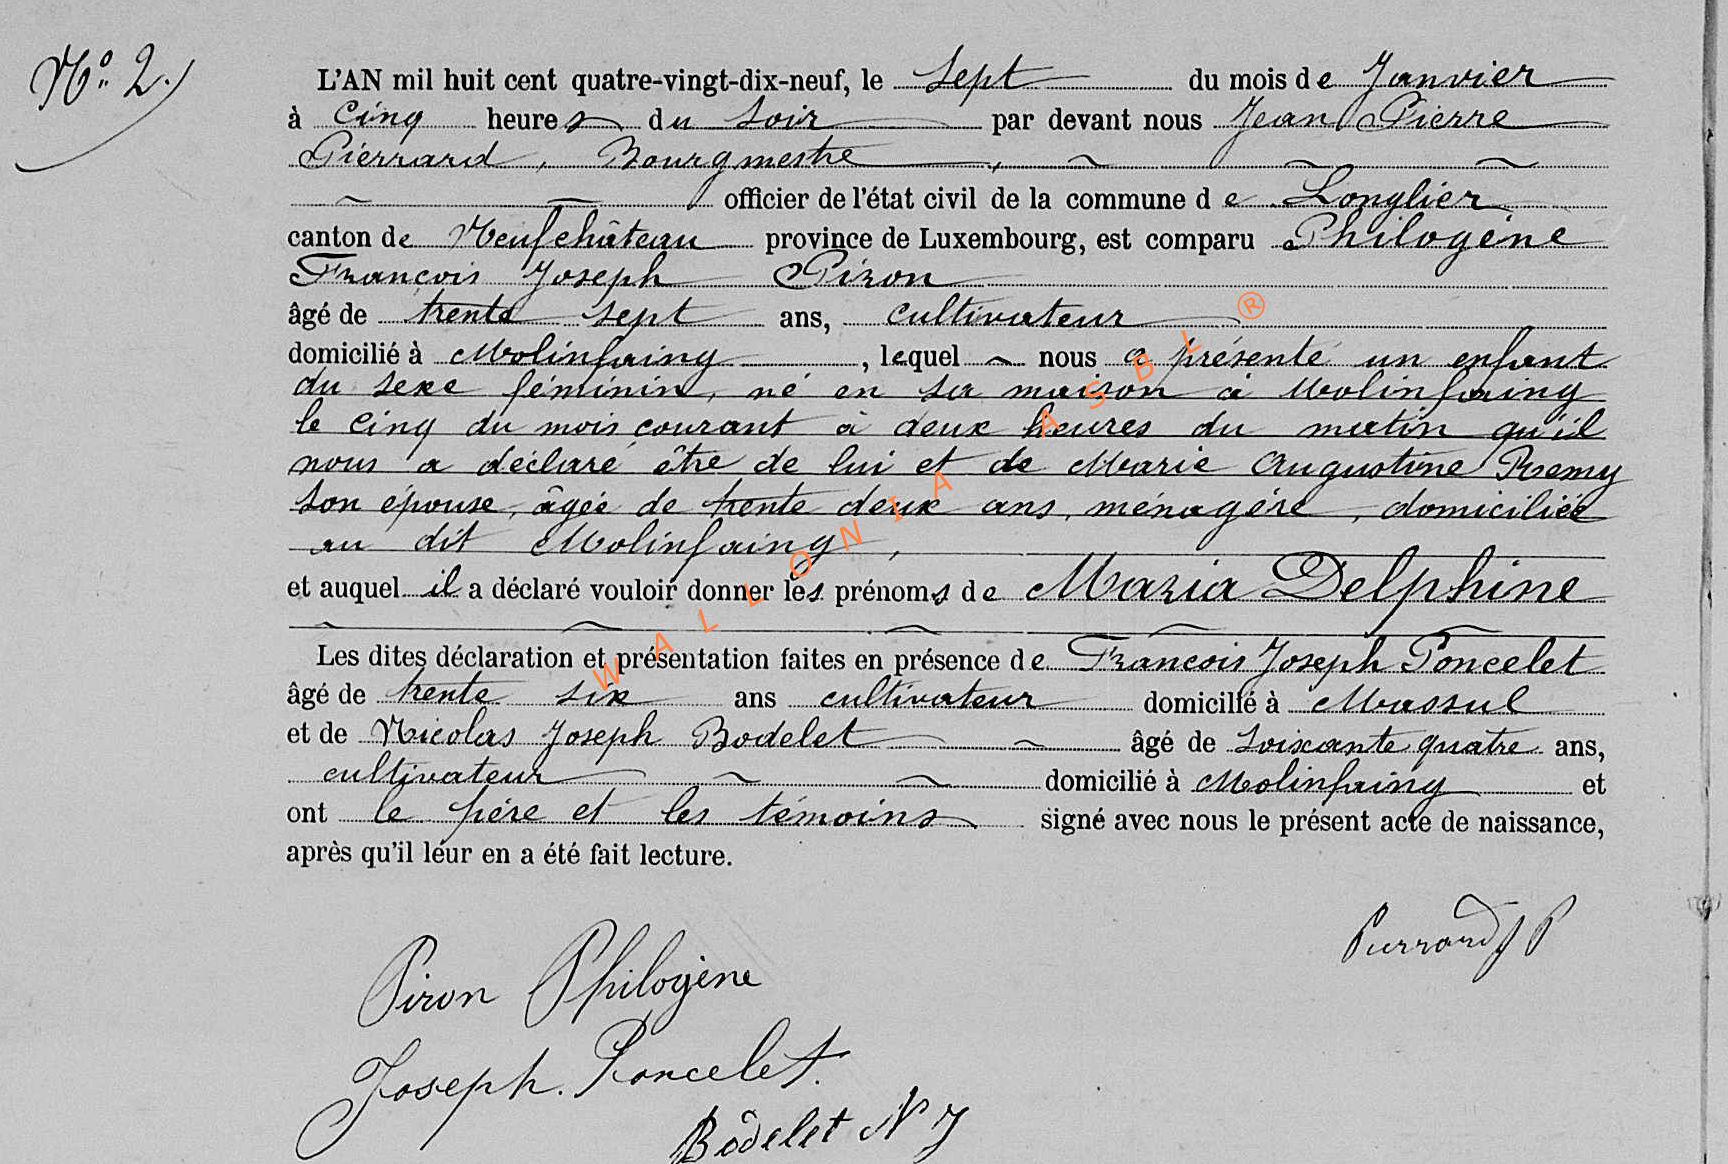 N° 2.
L'AN mil huit cent quatre-vingt-dix-neuf, le sept du mois de Janvier
à cinq heures du soir par devant nous Jean Pierre
Pierrard, Bourgmestre,
officier de l'état civil de la commune de Longlier
canton de Neufchâteau province de Luxembourg, est comparu Philogène
François Joseph Piron
âgé de trente sept ans, cultivateur
domicilié à Molinfaing, lequel nous a présenté un enfant
du sexe féminin, né en sa maison à Molinfaing
le cinq du mois courant à deux heures du matin qu'il
nous a déclaré être de lui et de Marie Augustine Remy
son épouse, âgée de trente deux ans, ménagère, domiciliée
au dit Molinfaing,
et auquel il a déclaré vouloir donner les prénoms de Maria Delphine
Les dites déclaration et présentation faites en présence de François Joseph Poncelet
âgé de trente six ans cultivateur domicilié à Massul
et de Nicolas Joseph Bodelet âgé de soixante quatre ans,
cultivateur domicilié à Molinfaing et
ont le père et les témoins signé avec nous le présent acte de naissance,
après qu'il leur en a été fait lecture.
Pierrard J P
Piron Philogène
Joseph. Poncelet.
Bodelet N J
WALLONIA ASBL ®